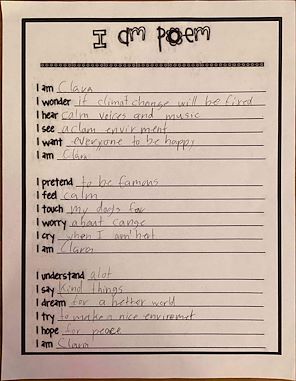 I am poem
I am Clara
I wonder if climat change will be fixed
I hear calm voices and music
I see a clam envirment
I want everyone to be happy
I am Clara
I pretend to be famous
I feel calm
I touch my dogs fur
I worry about cange
I cry when I am hert
I am Clara
I understand alot
I say kind things
I dream for a better world
I try to make a nice enviromet
I hope for peace
I am Clara